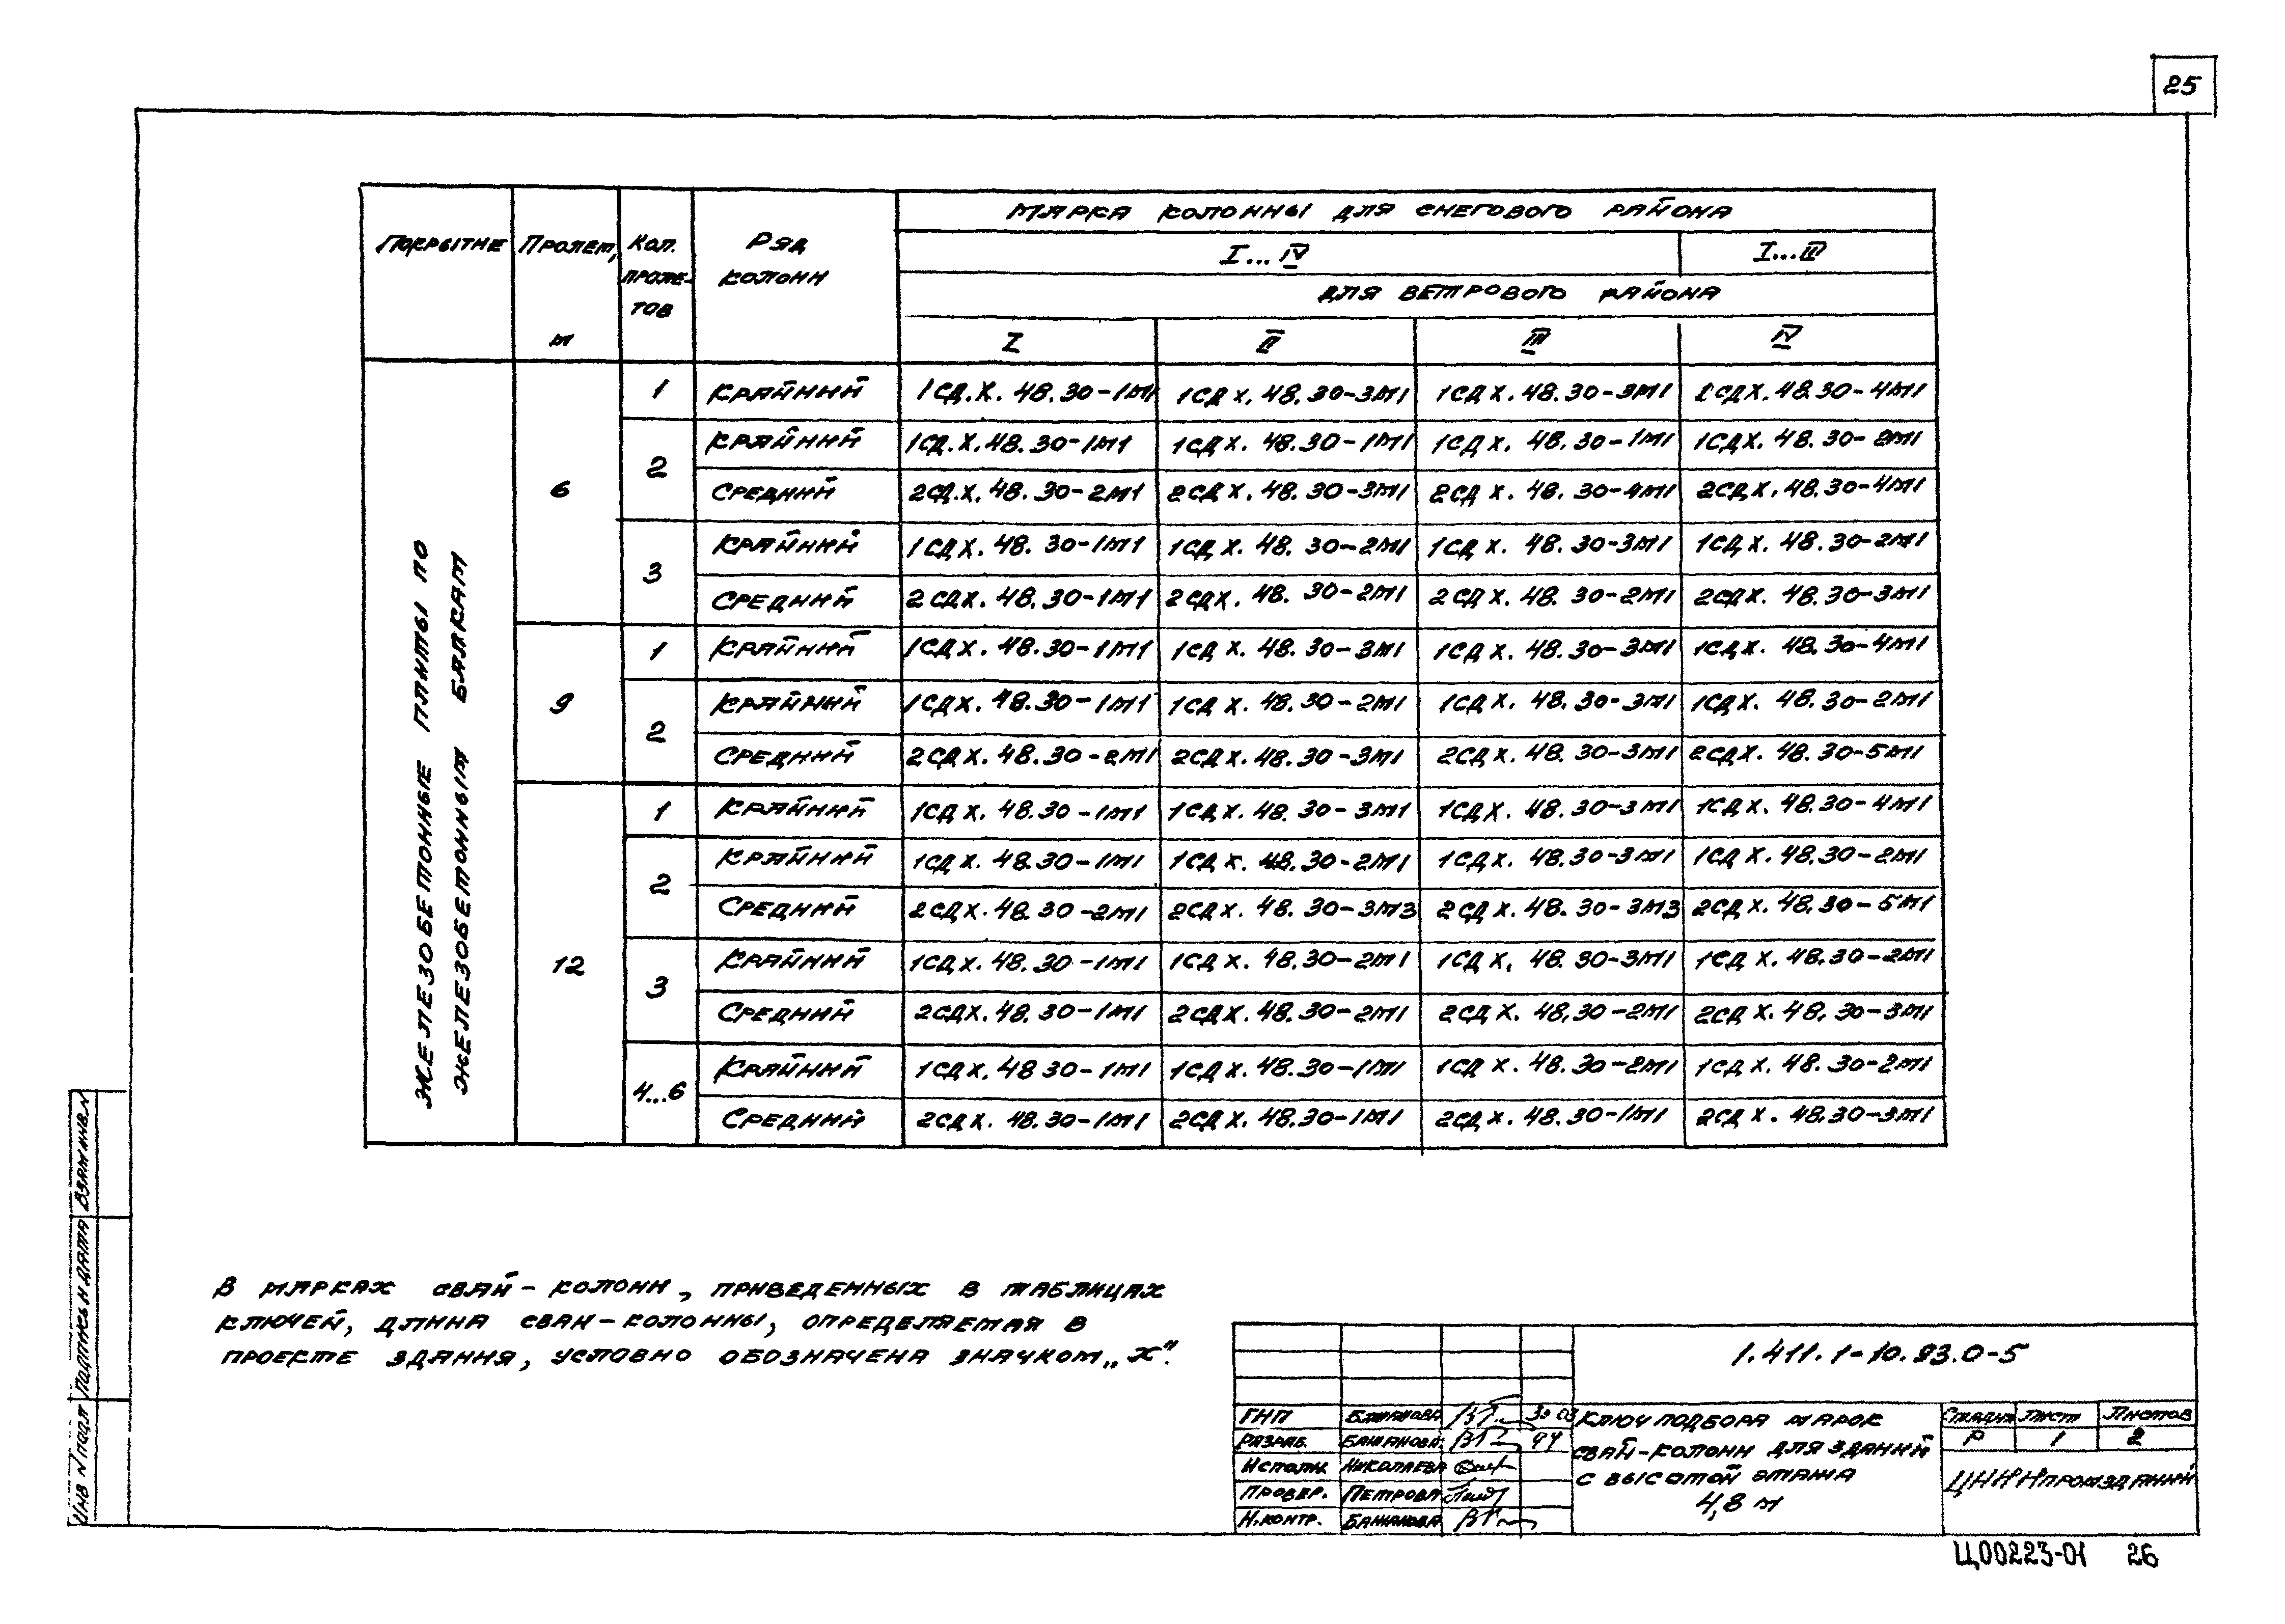 25
МАРКА КОЛОННЫ ДЛЯ СНЕГОВОГО РАЙОНА
ПОКРЫТИЕ ПРОЛЕТ, м КОЛ. ПРОЛЕ-ТОВ РЯД КОЛОНН
I...IV I...III
ДЛЯ ВЕТРОВОГО РАЙОНА
I II III IV
ЖЕЛЕЗОБЕТОННЫЕ ПЛИТЫ ПО
ЖЕЛЕЗОБЕТОННЫМ БАЛКАМ
6
1 КРАЙНИЙ 1СД.Х.48.30-1М1 1СДХ.48.30-3М1 1СДХ.48.30-3М1 1СДХ.48.30-4М1
2 КРАЙНИЙ 1СД.Х.48.30-1М1 1СДХ.48.30-1М1 1СДХ.48.30-1М1 1СДХ.48.30-2М1
СРЕДНИЙ 2СД.Х.48.30-2М1 2СДХ.48.30-3М1 2СДХ.48.30-4М1 2СДХ.48.30-4М1
3 КРАЙНИЙ 1СДХ.48.30-1М1 1СДХ.48.30-2М1 1СДХ.48.30-3М1 1СДХ.48.30-2М1
СРЕДНИЙ 2СДХ.48.30-1М1 2СДХ.48.30-2М1 2СДХ.48.30-2М1 2СДХ.48.30-3М1
9
1 КРАЙНИЙ 1СДХ.48.30-1М1 1СДХ.48.30-3М1 1СДХ.48.30-3М1 1СДХ.48.30-4М1
2 КРАЙНИЙ 1СДХ.48.30-1М1 1СДХ.48.30-2М1 1СДХ.48.30-3М1 1СДХ.48.30-2М1
СРЕДНИЙ 2СДХ.48.30-2М1 2СДХ.48.30-3М1 2СДХ.48.30-3М1 2СДХ.48.30-5М1
12
1 КРАЙНИЙ 1СДХ.48.30-1М1 1СДХ.48.30-3М1 1СДХ.48.30-3М1 1СДХ.48.30-4М1
2 КРАЙНИЙ 1СДХ.48.30-1М1 1СДХ.48.30-2М1 1СДХ.48.30-3М1 1СДХ.48.30-2М1
СРЕДНИЙ 2СДХ.48.30-2М1 2СДХ.48.30-3М3 2СДХ.48.30-3М3 2СДХ.48.30-5М1
3 КРАЙНИЙ 1СДХ.48.30-1М1 1СДХ.48.30-2М1 1СДХ.48.30-3М1 1СДХ.48.30-2М1
СРЕДНИЙ 2СДХ.48.30-1М1 2СДХ.48.30-2М1 2СДХ.48.30-2М1 2СДХ.48.30-3М1
4...6 КРАЙНИЙ 1СДХ.48 30-1М1 1СДХ.48.30-1М1 1СДХ.48.30-2М1 1СДХ.48.30-2М1
СРЕДНИЙ 2СДХ.48.30-1М1 2СДХ.48.30-1М1 2СДХ.48.30-1М1 2СДХ.48.30-3М1
В МАРКАХ СВАЙ-КОЛОНН, ПРИВЕДЕННЫХ В ТАБЛИЦАХ
КЛЮЧЕЙ, ДЛИНА СВАИ-КОЛОННЫ, ОПРЕДЕЛЯЕМАЯ В
ПРОЕКТЕ ЗДАНИЯ, УСЛОВНО ОБОЗНАЧЕНА ЗНАЧКОМ „Х".
ИНВ N ПОДЛ ПОДПИСЬ И ДАТА ВЗАМ ИНВ N
1.411.1-10.93.0-5
ГИП БАЖАНОВА 30 03
РАЗРАБ. БАЖАНОВА 94
ИСПОЛН. НИКОЛАЕВА
ПРОВЕР. ПЕТРОВА
Н.КОНТР. БАЖАНОВА
КЛЮЧ ПОДБОРА МАРОК
СВАЙ-КОЛОНН ДЛЯ ЗДАНИЙ
С ВЫСОТОЙ ЭТАЖА
4,8 м
СТАДИЯ ЛИСТ ЛИСТОВ
Р 1 2
ЦНИИПРОМЗДАНИЙ
Ц00223-01 26